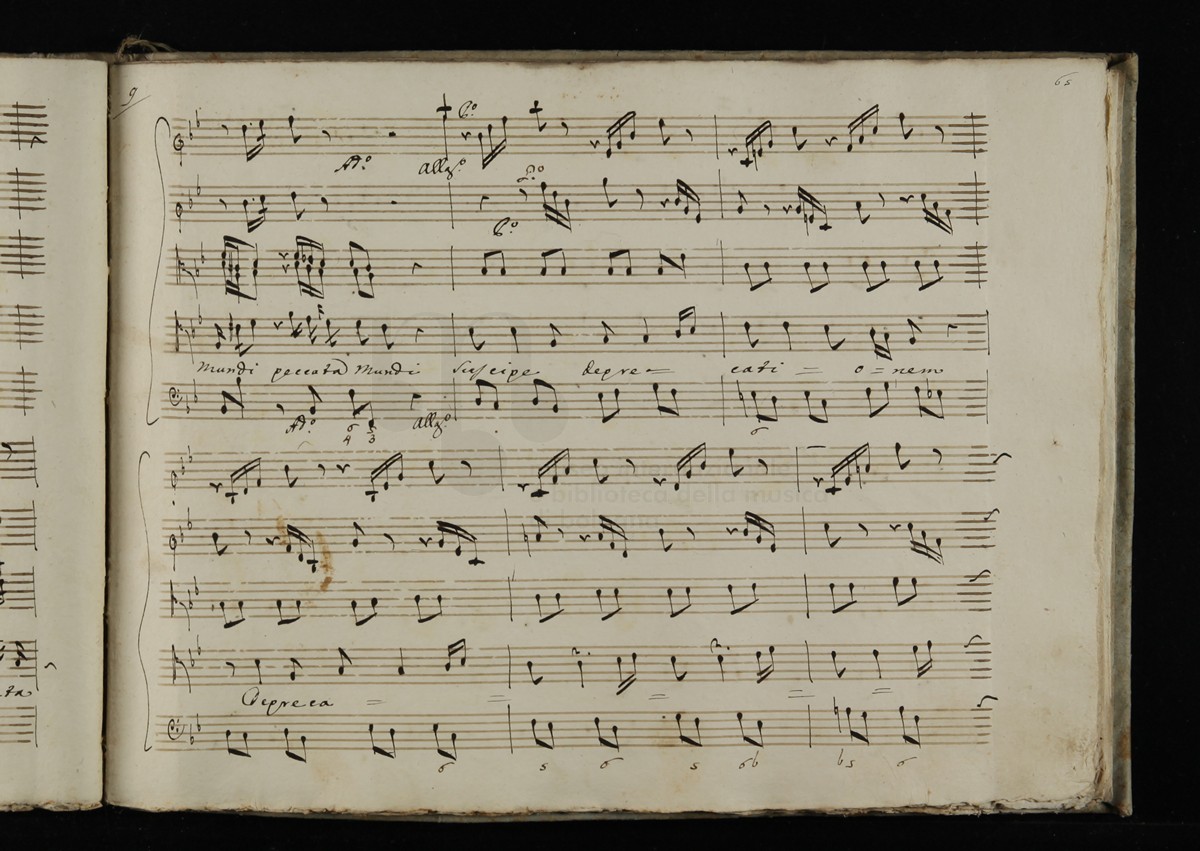 9
65
P.º
Ad.º Allg.º
2.º
P.º
Mundi peccata Mundi Suscipe depre = cati = o = nem
Ad.º 6 5 Allg.º 6
4 3
biblioteca della musica
Depreca = = = = =
6 5 6 5 6b b5 6
ta